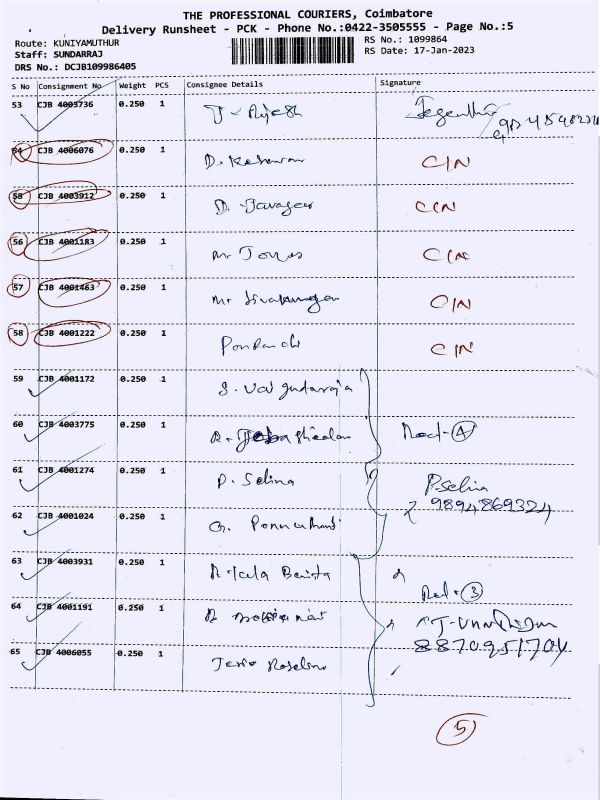 THE PROFESSIONAL COURIERS, Coimbatore
Delivery Runsheet - PCK - Phone No.:0422-3505555 - Page No.:5
Route: KUNIYAMUTHUR RS No.: 1099864
Staff: SUNDARRAJ RS Date: 17-Jan-2023
DRS No.: DCJB109986405
S No Consignment No Weight PCS Consignee Details Signature
53 CJB 4003736 0.250 1
54 CJB 4006076 0.250 1 D. Kesavan C/N
55 CJB 4003912 0.250 1 D. C/N
56 CJB 4001183 0.250 1 Mr Jones C/N
57 CJB 4001463 0.250 1 Mr Sivakumar C/N
58 CJB 4001222 0.250 1 C/N
59 CJB 4001172 0.250 1 S.
60 CJB 4003775 0.250 1 R. Recd - 4
61 CJB 4001274 0.250 1 P. Selina P.selina
9894869324
62 CJB 4001024 0.250 1 G.
63 CJB 4003931 0.250 1 Recd - 3
64 CJB 4001191 0.250 1
8870951704
65 CJB 4006055 0.250 1
5